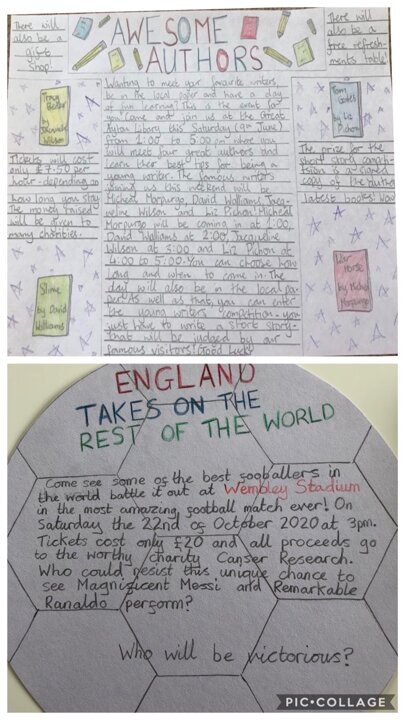 There will
also be a
gift
shop!
AWESOME
AUTHORS
There will
also be a
free refresh-
ments table!
Tracy
Beaker
by
Jacqueline
Wilson
Tickets will cost
only £7.50 per
hour-depending on
how long you stay.
The money raised
will be given to
many charities.
Slime
by David
Williams
Wanting to meet your favourite writers,
be in the local paper and have a day
of fun learning? This is the event for
you. Come and join us at the Great
Ayton Libary this Saturday (9th June)
from 1:00 to 5:00 pm where you
will meet four great authors and
learn their best tips for being a
young writer. The famous writers
joining us this weekend will be
Micheal Morpurgo, David Williams, Jacq-
eline Wilson and Liz Pichon. Micheal
Morpurgo will be coming in at 1:00,
David Williams at 2:00, Jacqueline
Wilson at 3:00 and Liz Pichon at
4:00 to 5:00. You can choose how
long and when to come in. The
day will also be in the local pa-
per. As well as that, you can enter
the young writers competition-you
just have to write a short story-
that will be judged by our
famous visitors! Good Luck!
Tom
Gates
by Liz
Pichon
The prize for the
short story
is a signed
copy of the author
latest books! Wow!
War
Horse
by Micheal
Morpurgo
ENGLAND
TAKES ON THE
REST OF THE WORLD
Come see some of the best fooballers in
the world battle it out at Wembley Stadium
in the most amazing football match ever! On
Saturday the 22nd of October 2020 at 3pm.
Tickets cost only £20 and all proceeds go
to the worthy charity Canser Research.
Who could resist this unique chance to
see Magnificent Messi and Remarkable
Ranaldo perform?
Who will be victorious?
PIC•COLLAGE